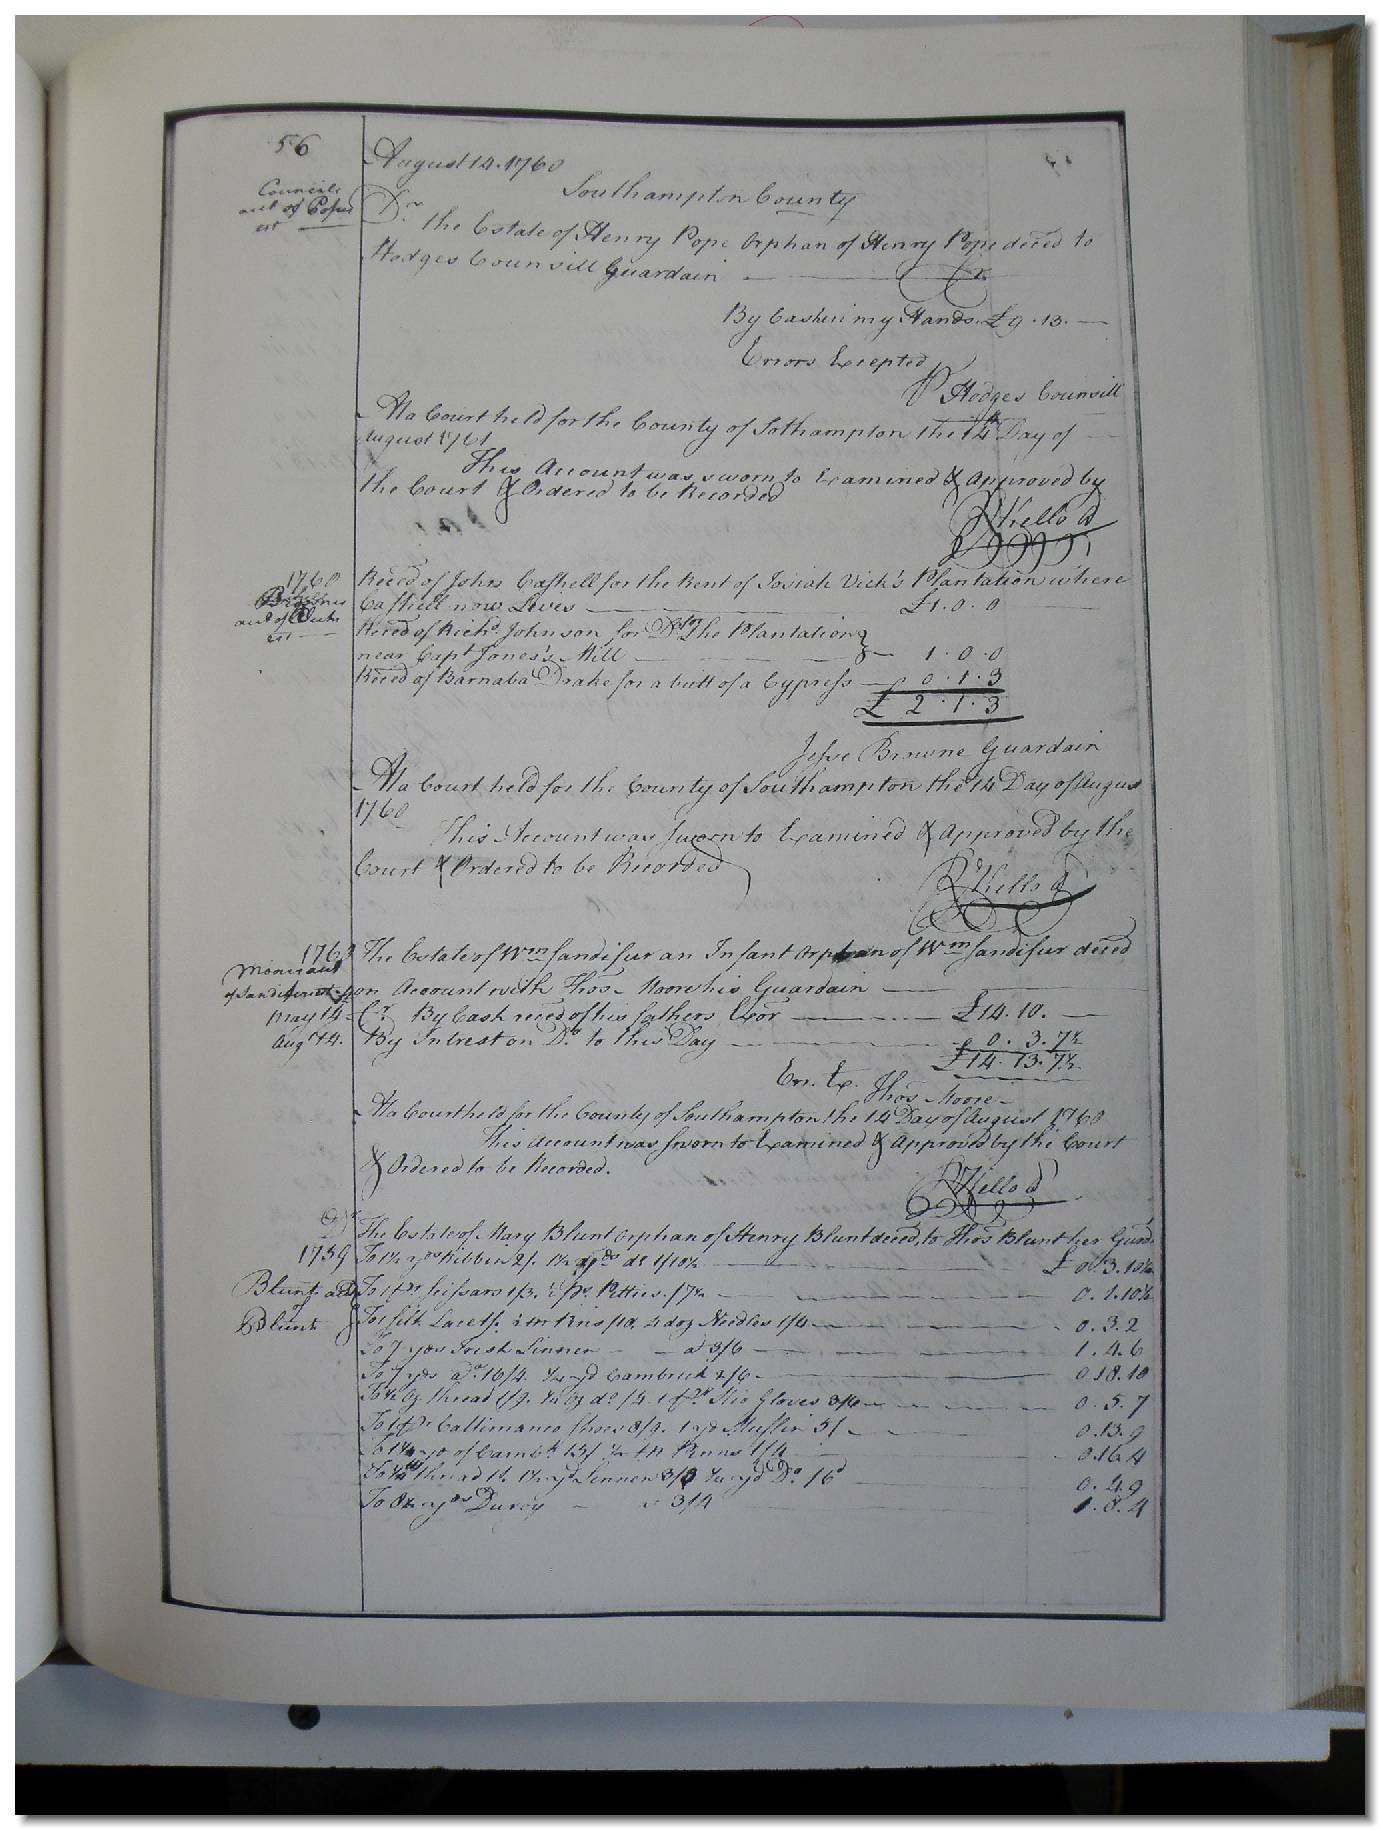 56
August 14. 1760
Southampton County
Councils
acct of Popes
est
Dr
the Estate of Henry Pope Orphan of Henry Pope deced to
Hodges Counsill Guardain Cr
By Cash in my Hands £9.13.
Errors Excepted
Hodges Counsill
At a Court held for the County of Sothampton the 14th Day of
August 1761
This Account was sworn to Examined & Approved by
the Court & Ordered to be Recorded
R Kello
1760
acct of Vicks
est
Reced of John Cashell for the Rent of Josiah Vick's Plantation where
Cashell now Lives £1.0.0
Reced of Richd. Johnson for Do. The Plantation
near Capt Jones's Mill 1.0.0
Reced of Barnaba Drake for a butt of a Cypress 0.1.3
£ 2.1.3
Jesse Browne Guardain
At a Court held for the County of Southampton the 14 Day of August
1760
This Account was sworn to Examined & Approved by the
Court & Ordered to be Recorded
Rd Kello
1760 The Estate of Wm Sandifur an Infant Orphan of Wm Sandifur deced
on Account with Thos. Moore his Guardain
May 14 Cr By Cash reced of his fathers Exor £14.10.
Augt 14. By Intrest on Do. to this Day 0.3.7½
£14.13.7½
Err. Ex. Thos Moore
At a Court held for the County of Southampton the 14 Day of August 1760
This Account was sworn to Examined & Approved by the Court
& Ordered to be Recorded.
R Kello
Dr
The Estate of Mary Blunt Orphan of Henry Blunt deced, to Thos Blunt her Guard.
1759 To 1½ yds Ribbin 2/. 1½ yds do 1/10½ £0.3.10½
Blunt acct
of
Blunt
To 1 pr Scissars 1/3. 0.1.10½
To silk Lace 0.3.2
To 7 yds Irish Linnen a 3/6 1.4.6
To 7 yds do. 16/4. ¼ yd Cambrick 2/6 0.18.10
0.5.7
To 1 pr Callimanco Shoes 8/9. 1 yd Muslin 5/ 0.13.9
0.16.4
0.4.9
To 8½ yds Duroy a 3/4 1.8.4